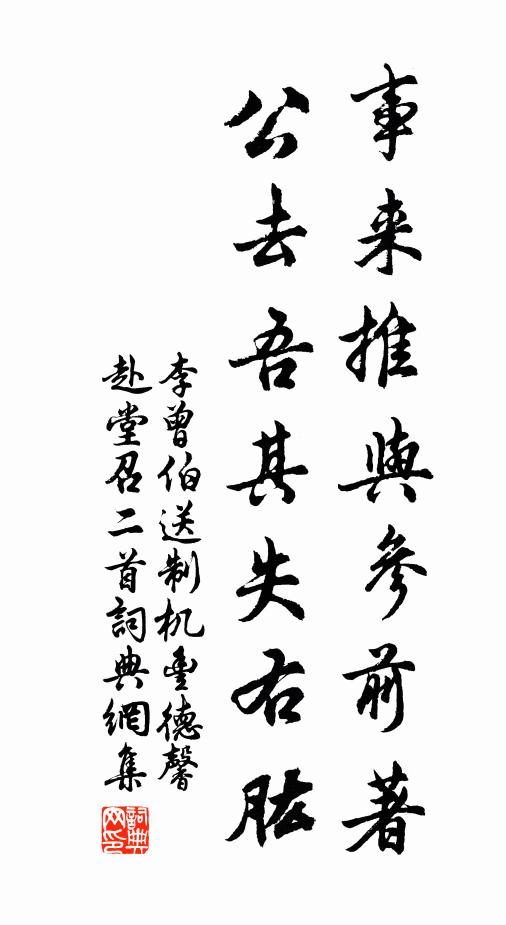 事来推與參前著
公去吾其失右肱
李曾伯送制机豊德馨
赴堂召二首詞典網集
詞典
网印